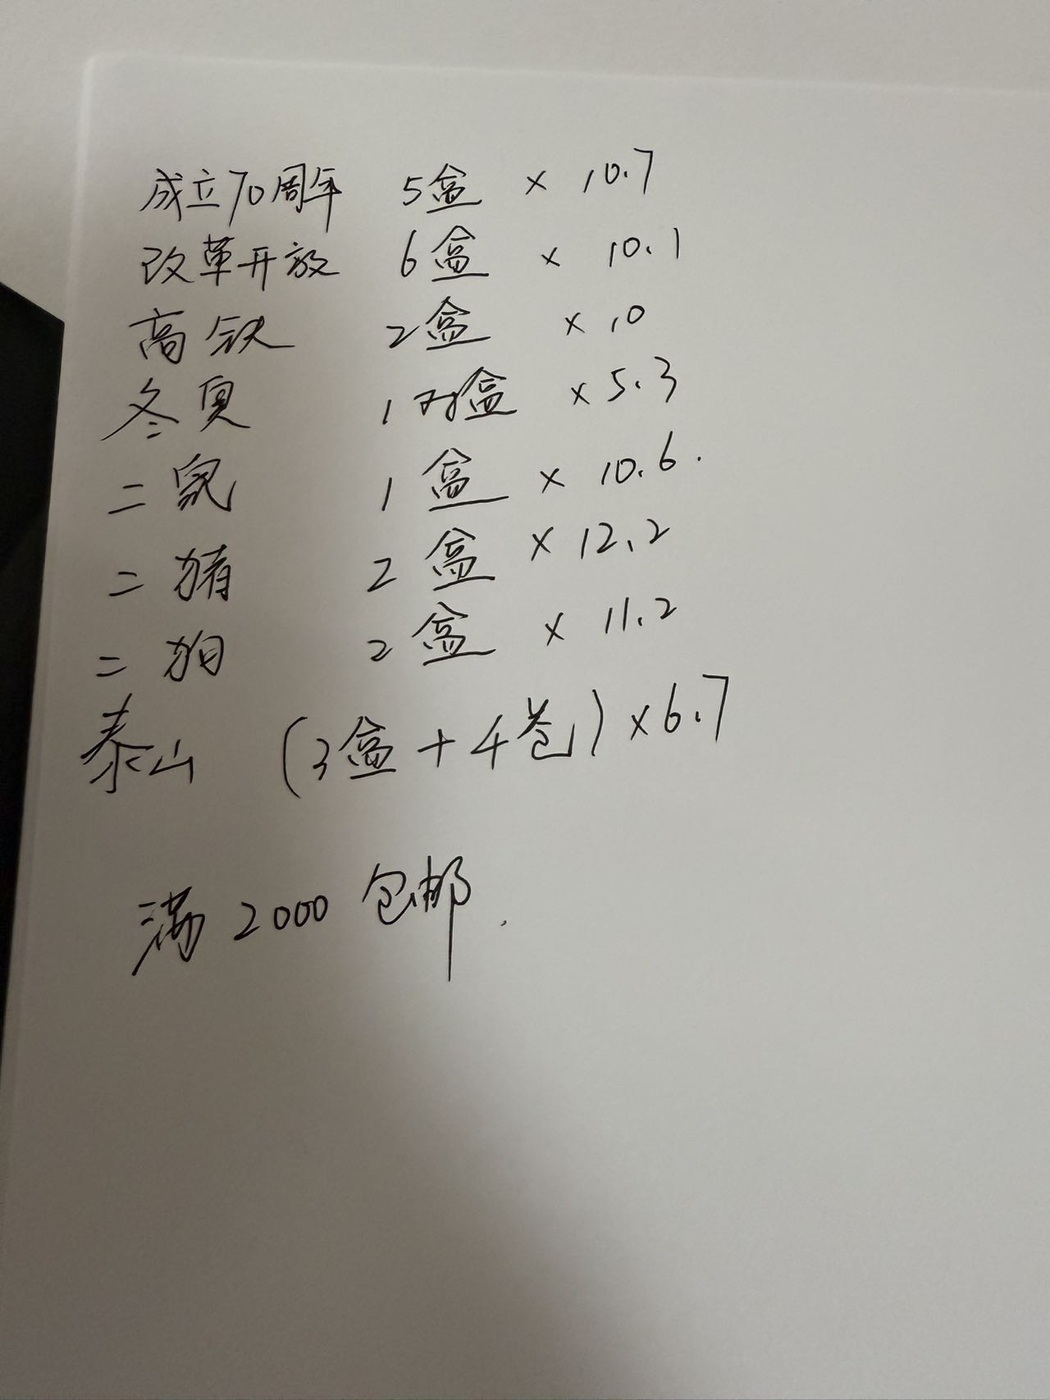 成立70周年 5盒 × 10.7
改革开放 6盒 × 10.1
高铁 2盒 × 10
冬奥 1对盒 × 5.3
二鼠 1盒 × 10.6.
二猪 2盒 × 12.2
二狗 2盒 × 11.2
泰山 (3盒+4卷) × 6.7
满2000包邮.